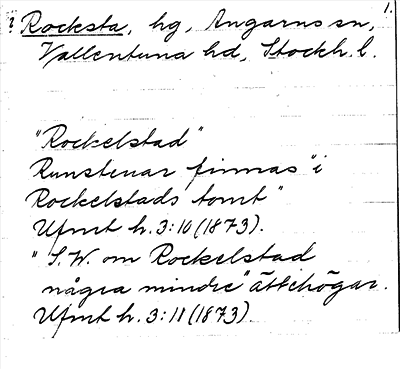 ? Rocksta, hg, Angarns sn, 1.
Vallentuna hd, Stockh. l.
"Rockelstad"
Runstenar finnas "i
Rockelstads tomt"
Ufmt h. 3:10 (1873).
" S.W. om Rockelstad
några mindre" ättehögar.
Ufmt h. 3:11 (1873).